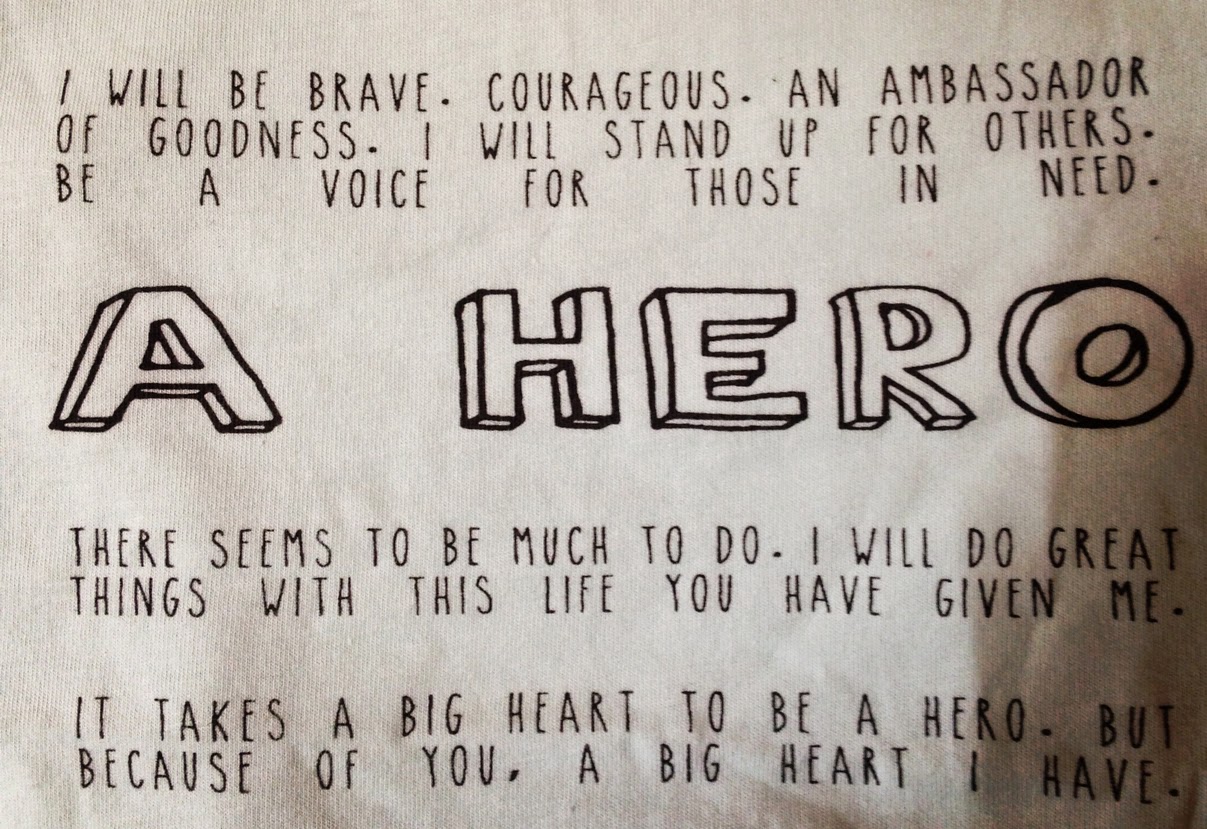 I WILL BE BRAVE. COURAGEOUS. AN AMBASSADOR
OF GOODNESS. I WILL STAND UP FOR OTHERS.
BE A VOICE FOR THOSE IN NEED.
A HERO
THERE SEEMS TO BE MUCH TO DO. I WILL DO GREAT
THINGS WITH THIS LIFE YOU HAVE GIVEN ME.
IT TAKES A BIG HEART TO BE A HERO. BUT
BECAUSE OF YOU, A BIG HEART I HAVE.